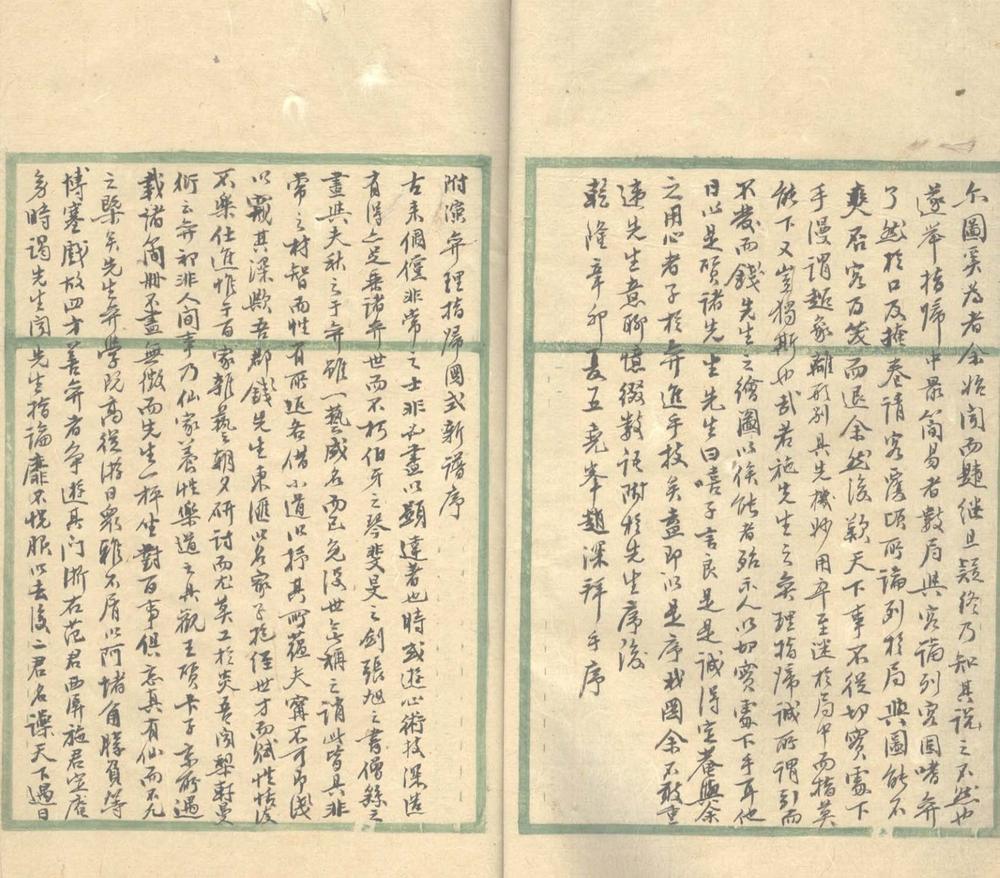 尔圖奚為者余始聞而題继且疑終乃知其說之不然也
遂举指帰中最简易者數局與客論列客固嗜弈
了然於口及掩卷請客覆頃所論列於局與圖能不
爽否客乃笑而退余然後歎天下事不從切實處下
手漫謂超象離形别具先機妙用卒至迷於局中而指莫
能下又豈獨斯也哉若施先生之弈理指帰誠所謂引而
不發而錢先生之繪圖以俟能者殆示人以切實處下手耳他
日以是質諸先生先生曰嘻子言良是是誠得定菴與余
之用心者子於弈進乎技矣盍即以是序我圖余不敢重
违先生意聊慎缀數語附於先生序後
乾隆辛卯夏五堯峯趙深拜手序
附演弈理指帰圖式新譜序
古来倜儻非常之士非必盡以顯達著也時或遊心術技深造
有得亦足垂諸弈世而不朽伯牙之琴斐旻之劍張旭之書僧繇之
畫與夫秋之于弈雖一藝咸名而已允後世無稱之誚此皆具非
常之材智而性有所近各借小道以抒其所蕴夫寧不可即淺
以窺其深歟吾郡錢先生東匯以名家子抱經世才而賦性恬淡
不樂仕進惟于百家雜藝朝夕研討而尤英工於奕吾聞槩尉曼
衍云弈初非人間事乃仙家養性樂道之具觀王質卡子京所遇
載諸简冊不盡無徵而先生一枰坐對百事俱忘真有仙而不凡
之槩矣先生弈學既高從游日衆雖不屑以阿堵角勝負等
博塞戲故四方善弈者争遊其门浙右范君西屏施君定庵
多時謁先生聞先生指論靡不悦服以去後二君名譟天下過日